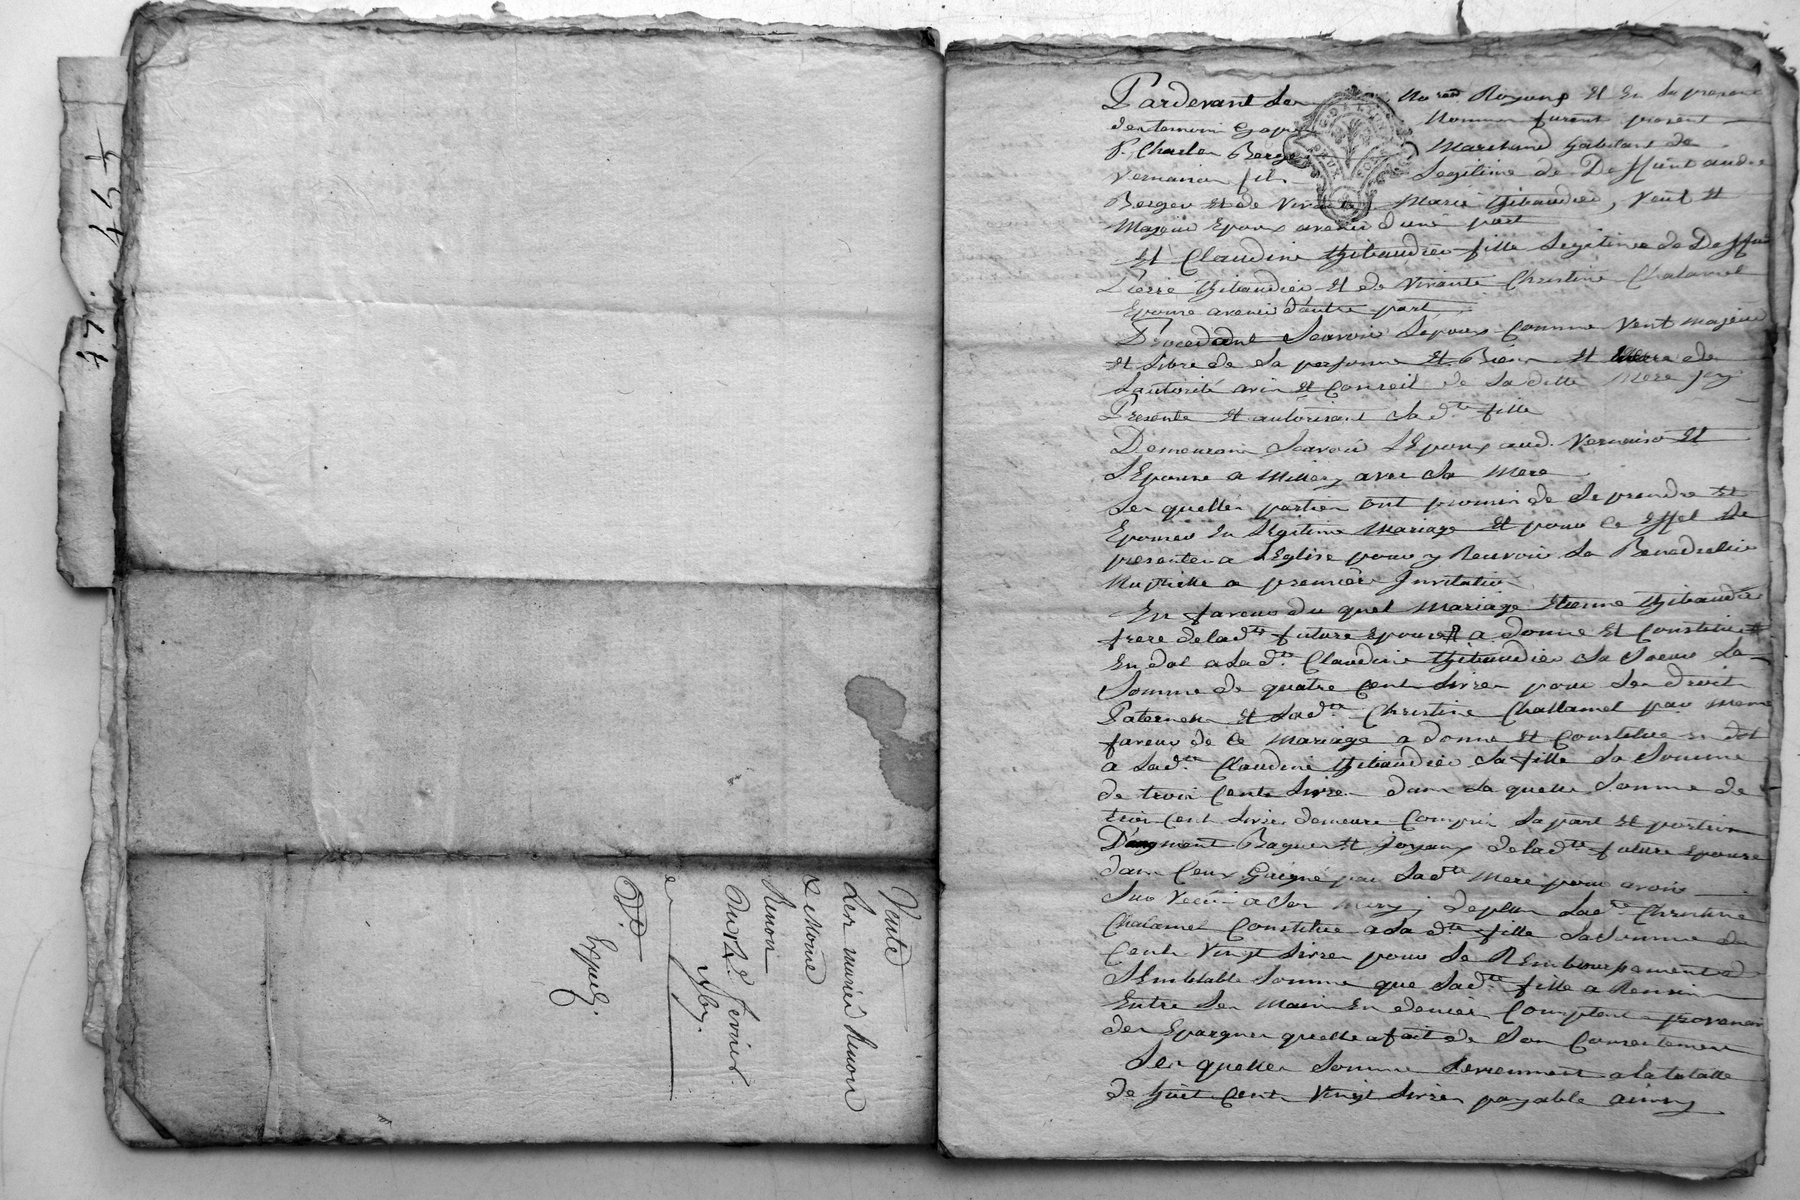 47. 46 5
Vente
Les mariés Rimon
& Morne
Rimon
Du 12e fevrier
et
Expedz.
Pardevant Les No.res Royaux Et En La presence
des temoins Es apres Nommés furent present
Sr. Charles Berger Marchand habitant de
Vernaison fils Legitime de Deffunt andre
Berger Et de Vivante Marie thibaudier, Veuf Et
Majeur Epoux avenir d'une part
Et Claudine thibaudier fille Legitime de Deffunt
Pierre thibaudier Et de Vivante Christine Chalamel
Epouse avenir d'autre part
Procedant Scavoir Lepoux Comme Veuf majeur
et Libre de Sa personne Et Biens Et de
Lautorité avis Et Conseil de Sa ditte Mere Jcy
Presente Et autorisant Sa d.te fille
Demeurans Scavoir LEpoux aud. Vernaison Et
LEpouse a Millery avec Sa Mere
Les quelles parties ont promis de Se prendre Et
Epouser En Legitime Mariage Et pour Ce Effet Se
presenter a LEglise pour y Recevoir La Benediction
Nuptielle a premiere Jnvitation
En faveur du quel Mariage Etienne thibaudier
frere de lad.te future Epouse a donné Et Constitué
En dot a Lad.te Claudine thibaudier Sa Soeur La
Somme de quatre Cent Livres pour Ses droits
Paternels Et Lad.te Christine Challamel par meme
faveur de Ce Mariage a donné Et Constitué en dot
a Lad.te Claudine thibaudier Sa fille La Somme
de trois Cents Livres dans La quelle Somme de
trois Cent Livres demeure Compris Sa part Et portion
D'augment Bagues Et Joyaux de lad.te future Epouse
dans Ceux Gaigné par Lad.te Mere pour avoir
Survécu a Son Mary; de plus Lad.te Christine
Chalamel Constitue a La d.te fille La Somme de
Cent Vingt Livres pour Le Remboursement de
SEmblable Somme que Lad.te fille a Remis
Entre Ses Mains En deniers Comptent provenant
des Epargnes quelle a fait de Son Consentement
Les quelles Sommes Reviennent a la totalle
de huit Cents Vingt Livres payable ainsy